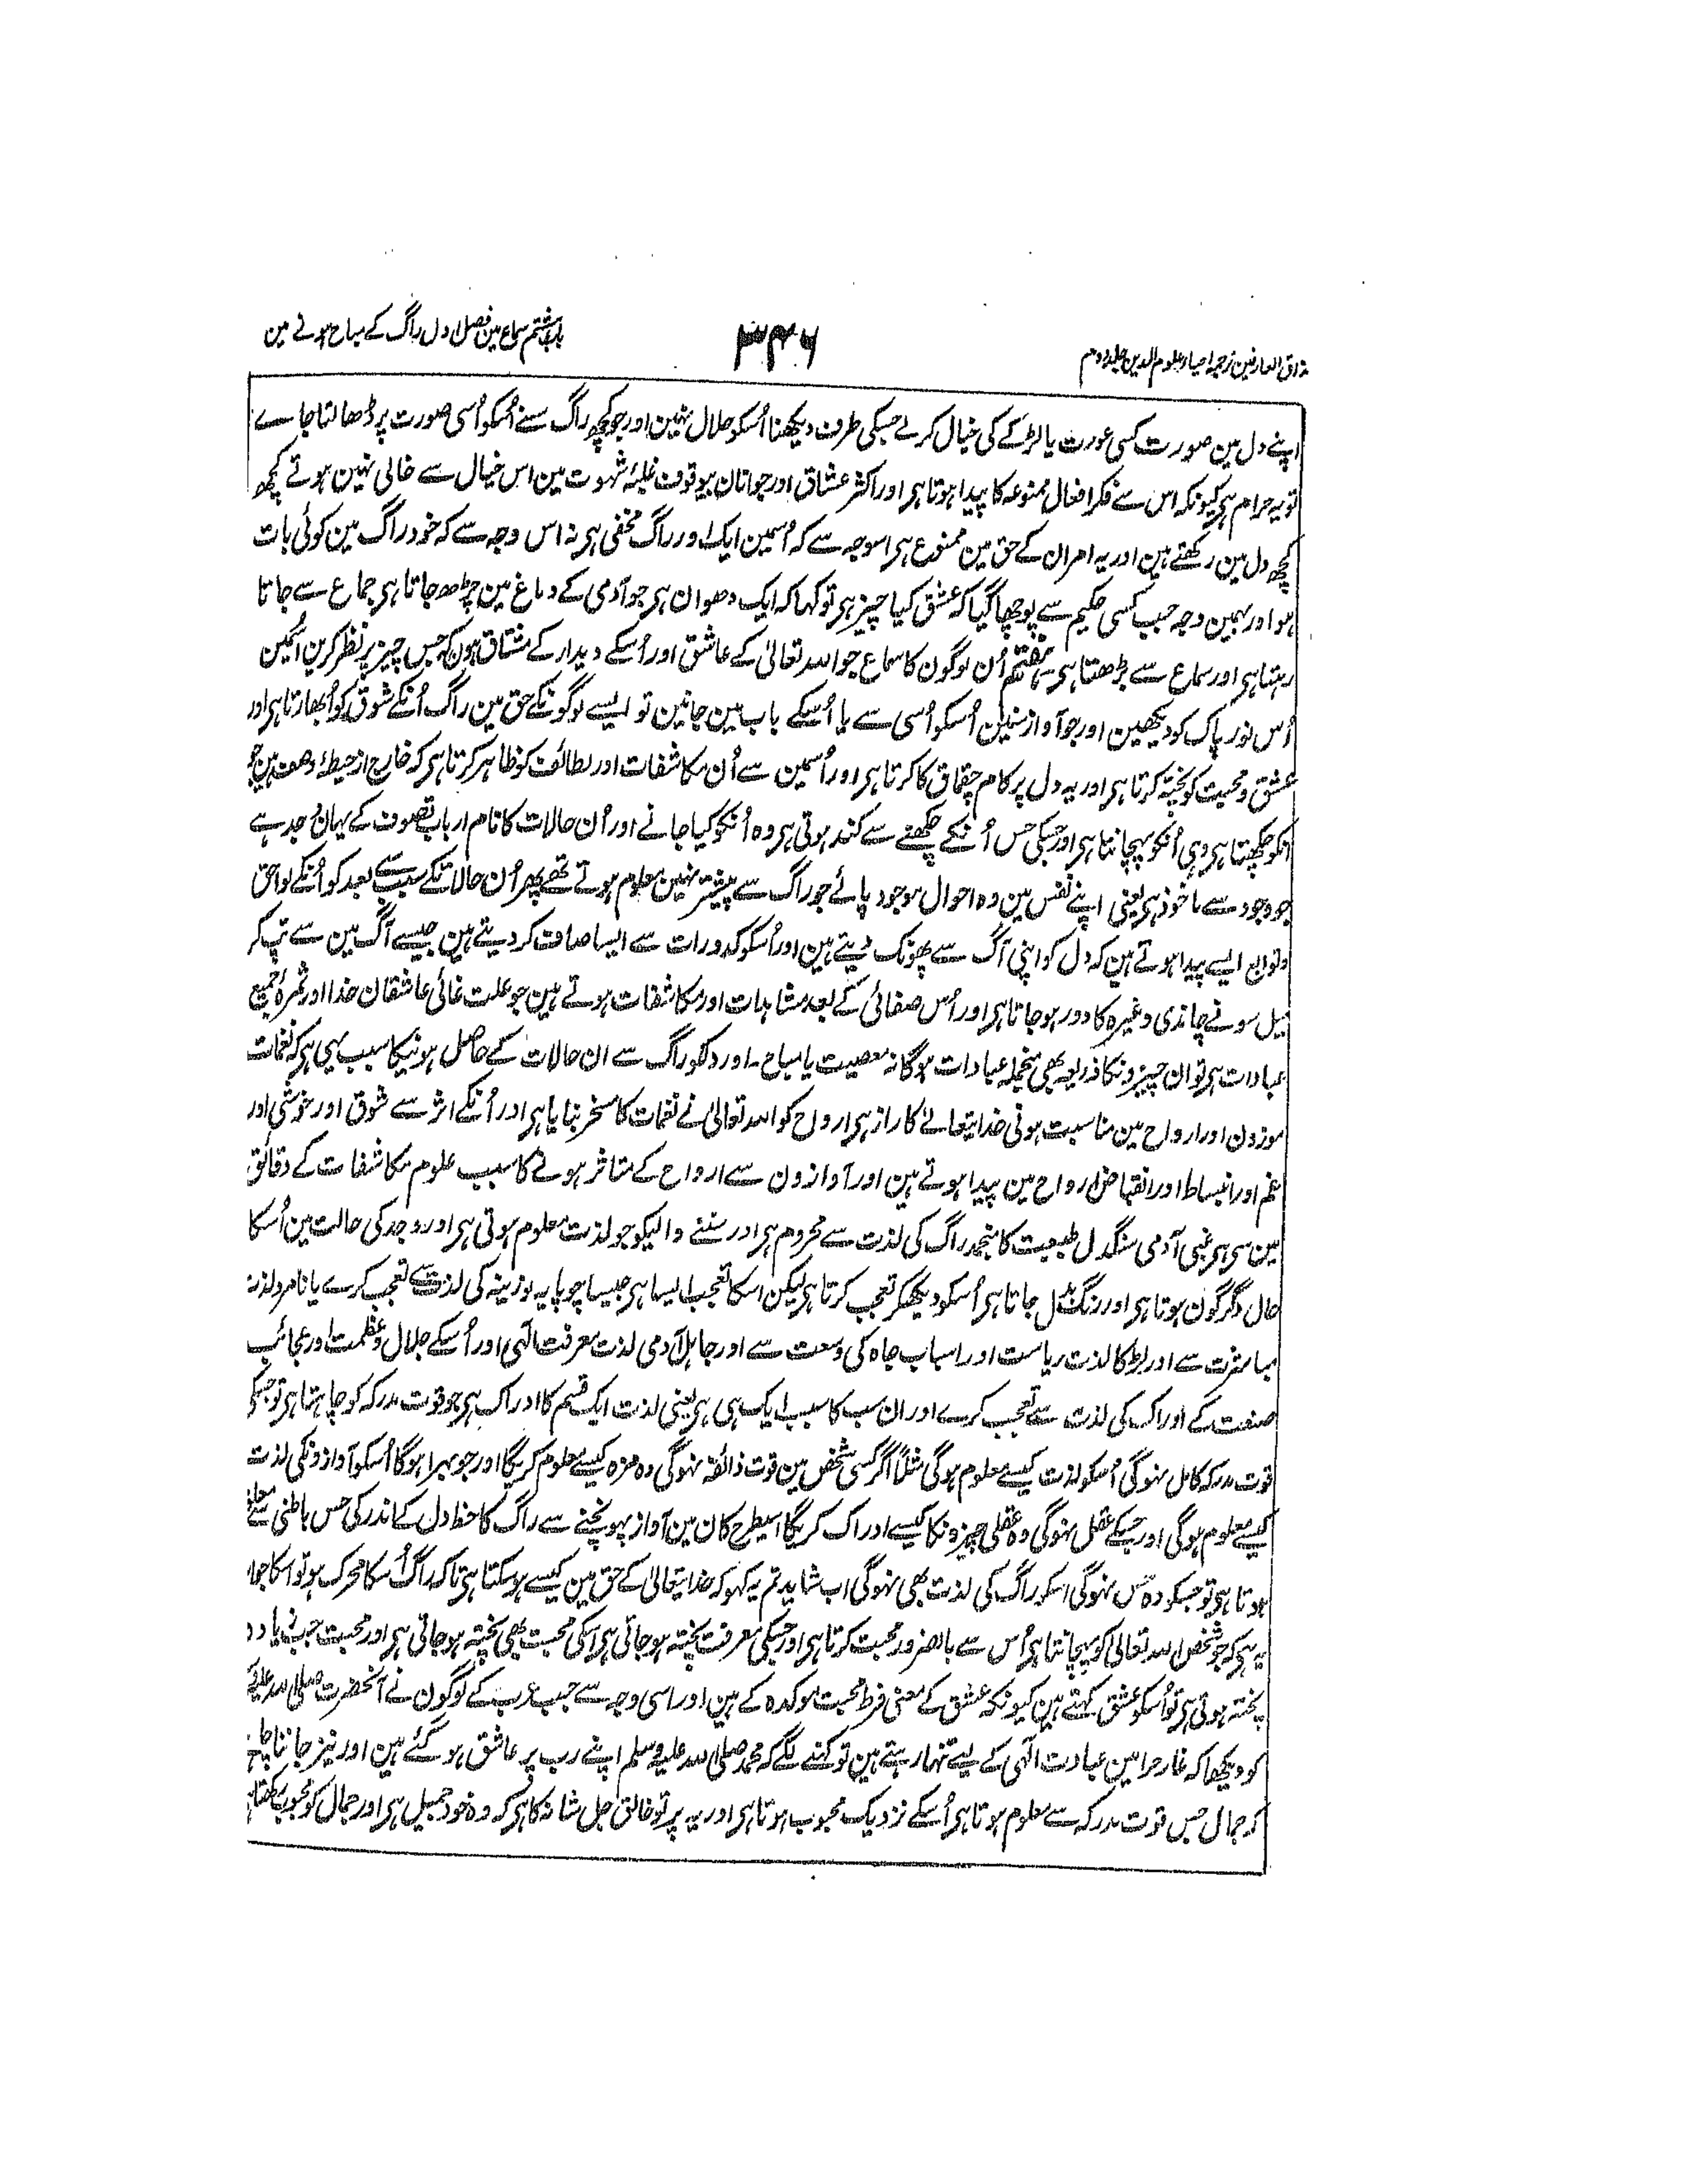 مذاق العارفین ترجمہ احیاء علوم الدین جلد دوم
۳۴۶
باب ہشتم سماع مین فصل اول راگ کے مباح ہونے مین
اپنے دل مین صورت کسی عورت یا لڑکے کی خیال کرلے جسکی طرف دیکھنا اُسکو حلال نہین اور جو کچھ راگ سنے اُسکو اُسی صورت پر ڈھالتا جاے
تو یہ حرام ہی کیونکہ اس سے فکر افعال ممنوعہ کا پیدا ہوتا ہی اور اکثر عشاق اور جوانان بیوقوف غلبۂ شہوت مین اس خیال سے خالی نہین ہوتے کچھ
کچھ دل مین رکھتے ہین اور یہ امر ان کے حق مین ممنوع ہی اسوجہ سے کہ اُسمین ایک اور راگ مخفی ہی نہ اس وجہ سے کہ خود راگ مین کوئی بات
ہو اور بہمین وجہ جب کسی حکیم سے پوچھا گیا کہ عشق کیا چیز ہی تو کہا کہ ایک دھوان ہی جو آدمی کے دماغ مین چڑھ جاتا ہی جماع سے جاتا
رہتا ہی اور سماع سے بڑھتا ہی ہفتم اُن لوگون کا سماع جو اللہ تعالیٰ کے عاشق اور اُسکے دیدار کے مشتاق ہون کہ جس چیز پر نظر کرین اُسمین
اُس نور پاک کو دیکھین اور جو آواز سنین اُسکو اُسی سے یا اُسکے باب مین جانین تو ایسے لوگونکے حق مین راگ اُنکے شوق کو اُبھارتا ہی اور
عشق و محبت کو پختہ کرتا ہی اور یہ دل پر کام چقماق کا کرتا ہی اور اُسمین سے اُن مکاشفات اور لطائف کو ظاہر کرتا ہی کہ خارج از حیطۂ وصف ہین جو
انکو چکھتا ہی وہی اُنکو پہچانتا ہی اور جسکی حس اُنکے چکھنے سے کند ہوتی ہی وہ اُنکو کیا جانے اور اُن حالات کا نام ارباب تصوف کے یہان وجد ہے
جو وجود سے ماخوذ ہی یعنی اپنے نفس مین وہ احوال موجود پائے جو راگ سے پیشتر نہین معلوم ہوتے تھے پھر اُن حالاتکے سبب سے بعد کو اُنکے لواحق
و توابع ایسے پیدا ہوتے ہین کہ دل کو اپنی آگ سے پھونک دیتے ہین اور اُسکو کدورات سے ایسا صاف کر دیتے ہین جیسے آگ مین سے تپ کر
میل سونے چاندی وغیرہ کا دور ہو جاتا ہی اور اُس صفائی کے بعد مشاہدات اور مکاشفات ہوتے ہین جو علت غائی عاشقان خدا اور ثمرۂ جمیع
عبادات ہی تو ان چیزونکا ذریعہ بھی منجملہ عبادات ہوگا نہ معصیت یا مباح ۔ اور دلکو راگ سے ان حالات کے حاصل ہونیکا سبب یہی ہی کہ نغمات
موزون اور ارواح مین مناسبت ہونی خدایتعالےٰ کا راز ہی ارواح کو اللہ تعالیٰ نے نغمات کا مسخر بنایا ہی اور اُنکے اثر سے شوق اور خوشی اور
غم اور انبساط اور انقباض ارواح مین پیدا ہوتے ہین اور آوازون سے ارواح کے متاثر ہونے کا سبب علوم مکاشفات کے دقائق
مین سی ہی غبی آدمی سنگدل طبیعت کا منجمد راگ کی لذت سے محروم ہی اور سننے والیکو جو لذت معلوم ہوتی ہی اور وجد کی حالت مین اُسکا
حال دگرگون ہوتا ہی اور رنگ بدل جاتا ہی اُسکو دیکھکر تعجب کرتا ہی لیکن اسکا تعجب ایسا ہی جیسا چوپایہ لوزینہ کی لذت سے تعجب کرے یا نامرد لذت
مباشرت سے اور لڑکا لذت ریاست اور اسباب جاہ کی وسعت سے اور جاہل آدمی لذت معرفت الٰہی اور اُسکے جلال و عظمت اور عجائب
صنعت کے ادراک کی لذت سے تعجب کرے اور ان سب کا سبب ایک ہی ہی یعنی لذت ایک قسم کا ادراک ہی جو قوت مدرکہ کو چاہتا ہی تو جسکی
قوت مدرکہ کامل نہوگی اُسکو لذت کیسے معلوم ہوگی مثلاً اگر کسی شخص مین قوت ذائقہ نہوگی وہ مزہ کیسے معلوم کریگا اور جو بہرا ہوگا اُسکو آوازونکی لذت
کیسے معلوم ہوگی اور جسکے عقل نہوگی وہ عقلی چیزونکا کیسے ادراک کریگا اسیطرح کان مین آواز پہونچنے سے راگ کا حظ دل کے اندر کی حس باطنی سے معلوم
ہوتا ہی تو جسکو وہ حس نہوگی اسکو راگ کی لذت بھی نہوگی اب شاید تم یہ کہو کہ خدایتعالیٰ کے حق مین کیسے ہوسکتا ہی تاکہ راگ اُسکا محرک ہو تو اسکا جواب
یہ ہی کہ جو شخص اللہ تعالیٰ کو پہچانتا ہی اُس سے بالضرور محبت کرتا ہی اور جسکی معرفت پختہ ہو جاتی ہی اسکی محبت بھی پختہ ہو جاتی ہی اور محبت جب زیادہ
پختہ ہوتی ہی تو اُسکو عشق کہتے ہین کیونکہ عشق کے معنی فرط محبت موکدہ کے ہین اور اسی وجہ سے جب عرب کے لوگون نے آنحضرت صلی اللہ علیہ
کو دیکھا کہ غار حرا مین عبادت الٰہی کے لیے تنہا رہتے ہین تو کہنے لگے کہ محمد صلی اللہ علیہ وسلم اپنے رب پر عاشق ہو گئے ہین اور نیز جاننا چاہیے
کہ جمال جس قوت مدرکہ سے معلوم ہوتا ہی اُسکے نزدیک محبوب ہوتا ہی اور یہ پرتو خالق جل شانہ کا ہی کہ وہ خود جمیل ہی اور جمال کو محبوب رکھتا